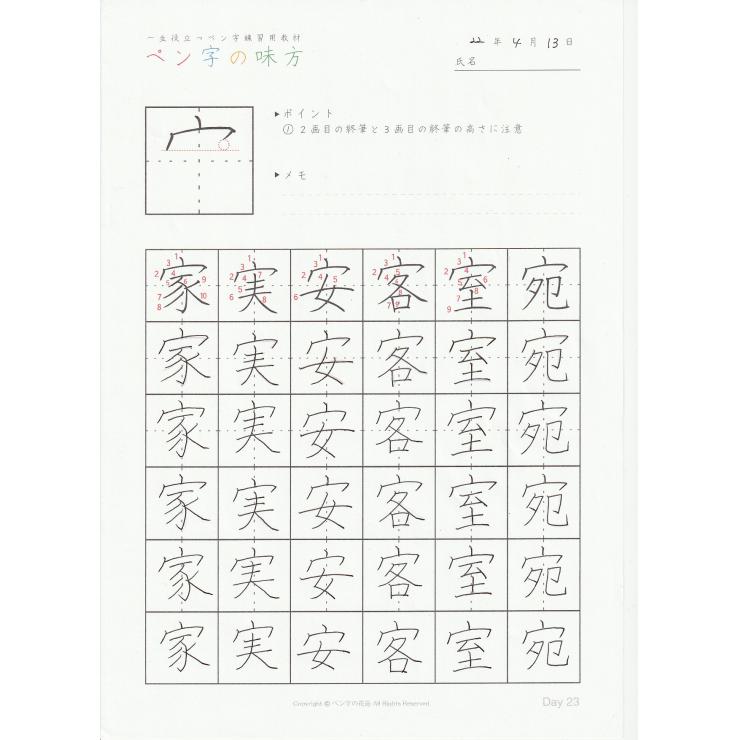 一生役立つペン字練習用教材
ペン字の味方
22年4月13日
氏名
▶ポイント
① 2画目の終筆と3画目の終筆の高さに注意
▶メモ
宀
家 実 安 客 室 宛
家 実 安 客 室 宛
家 実 安 客 室 宛
家 実 安 客 室 宛
家 実 安 客 室 宛
家 実 安 客 室 宛
Copyright © ペン字の花道 All Rights Reserved.
Day 23